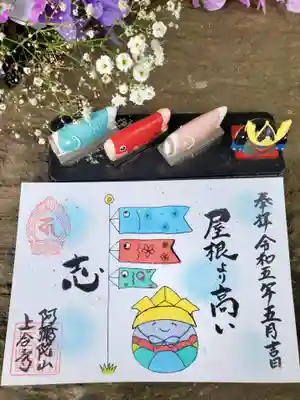 奉拝 令和五年五月吉日
屋根より高い
志
阿弥陀山
上合寺